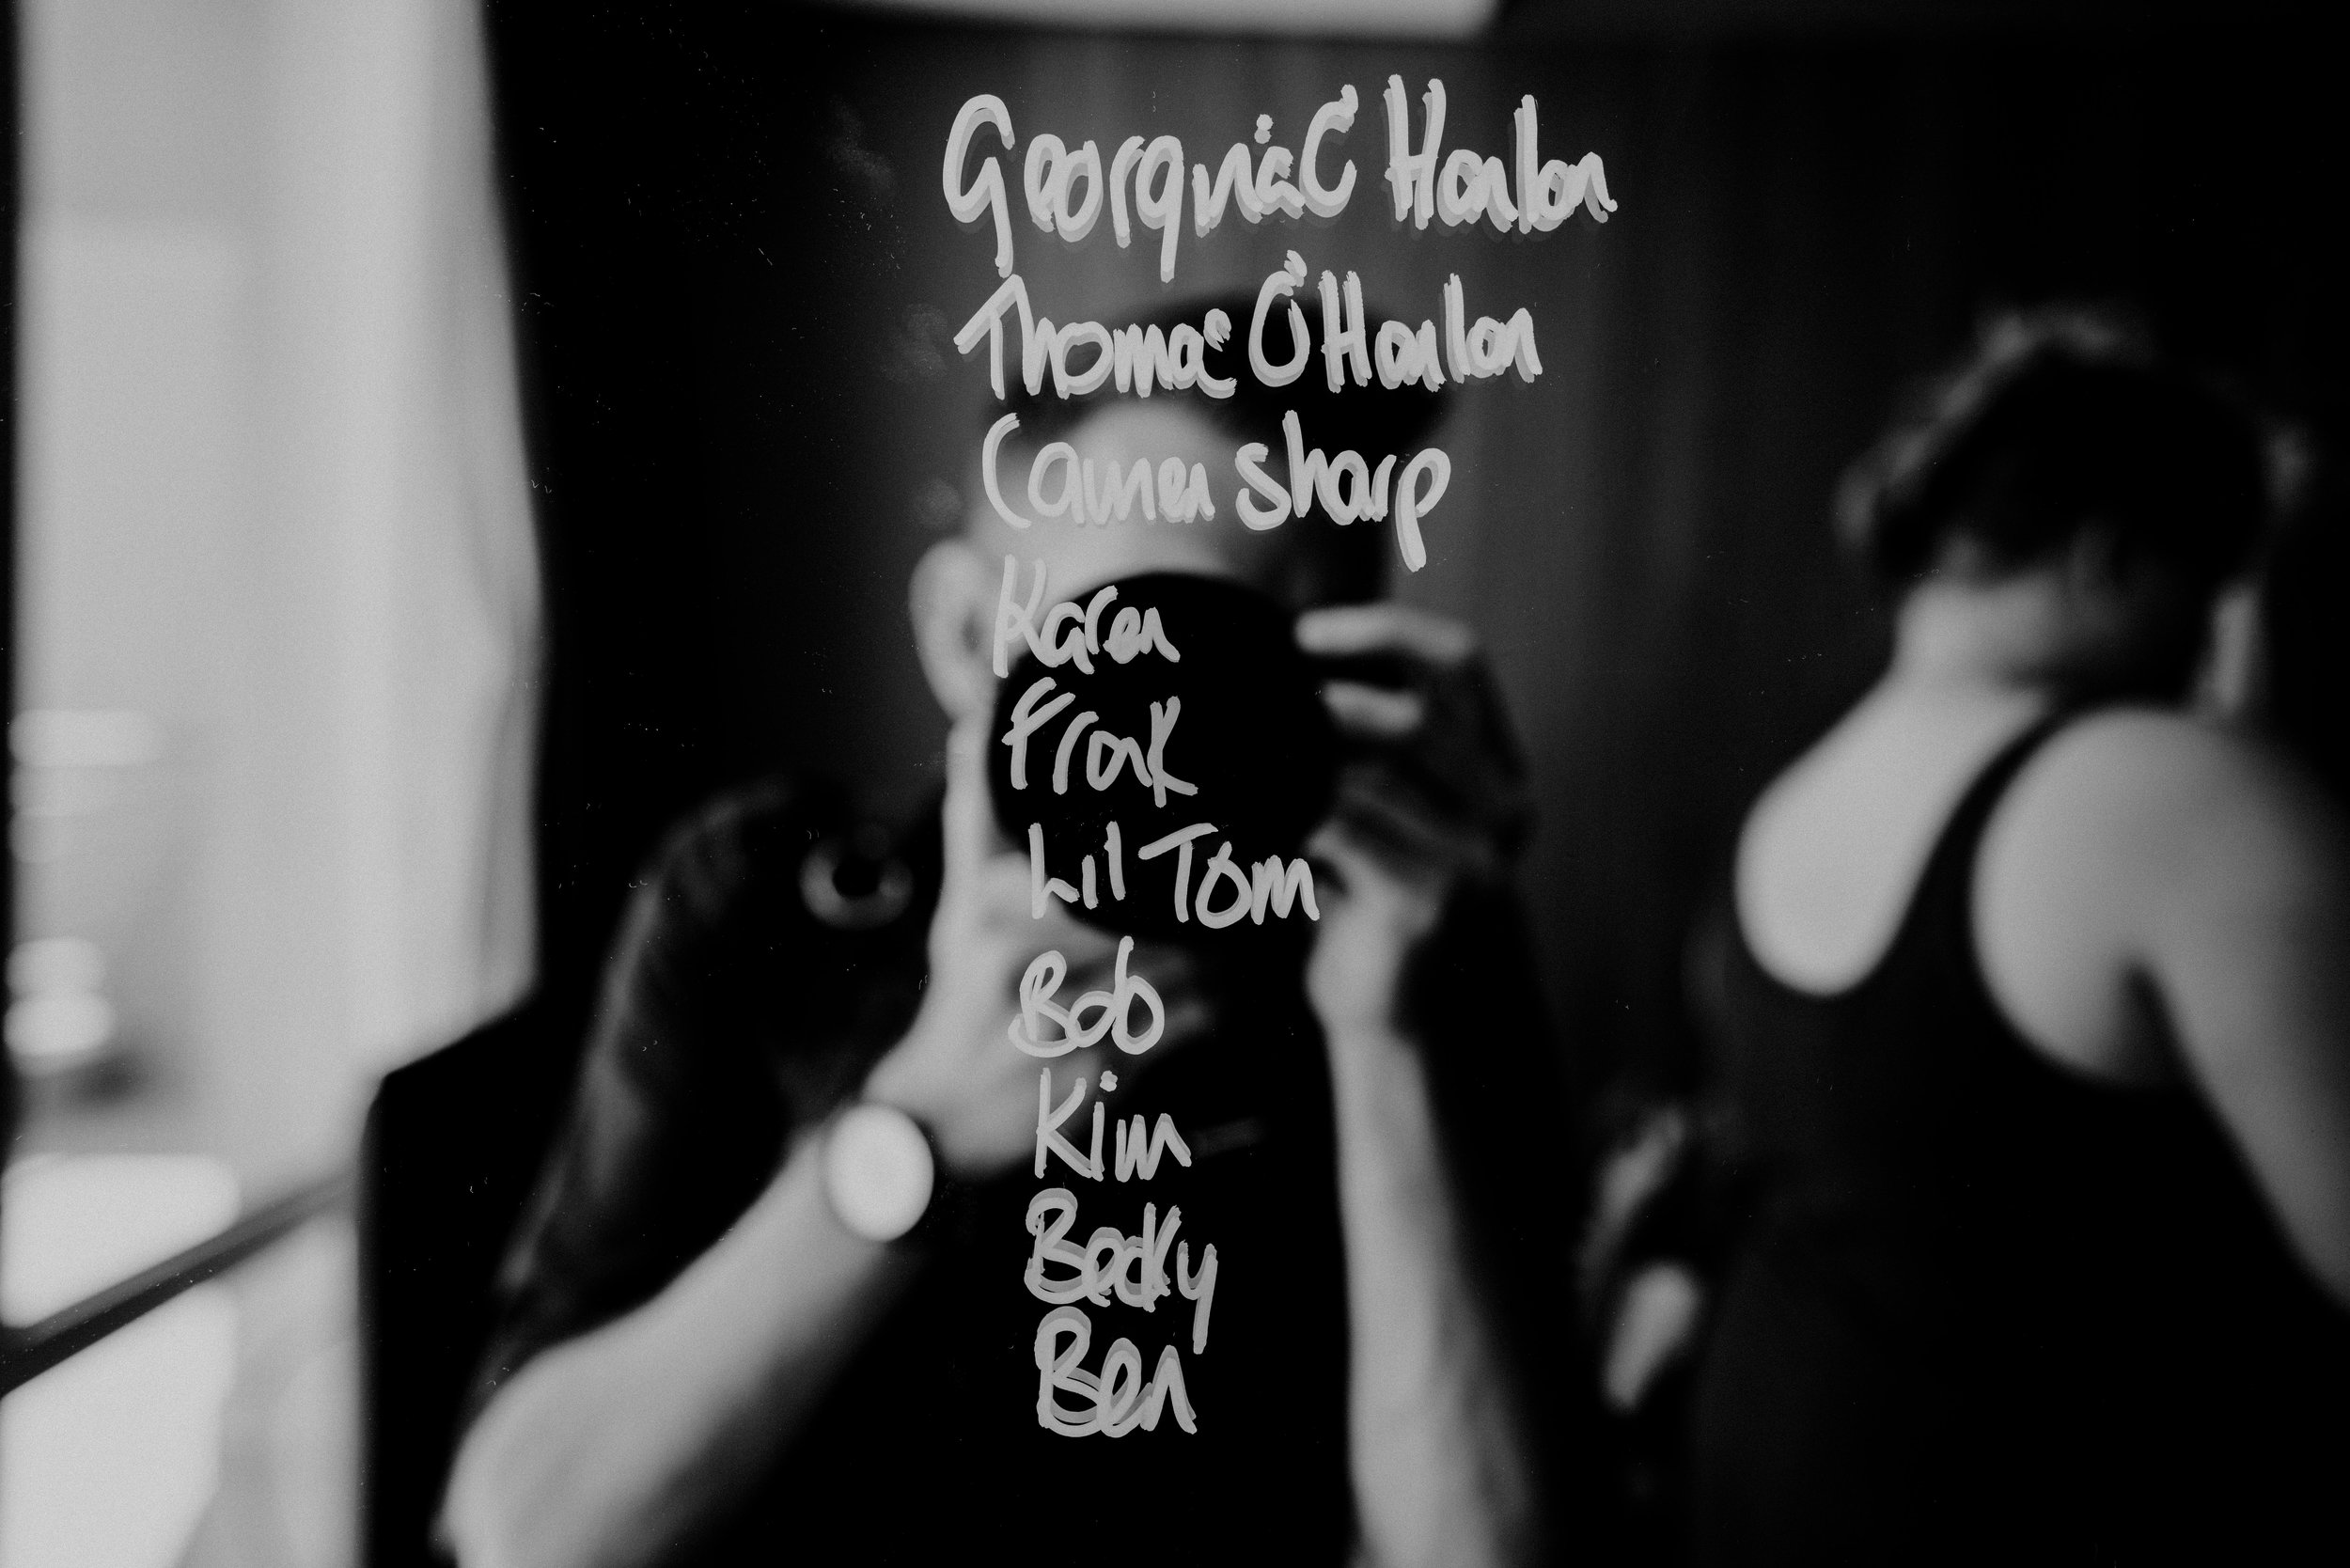 Georgina O'Hanlon
Thomas O'Hanlon
Camen sharp
Karen
Frank
Lil Tom
Bob
Kim
Becky
Ben